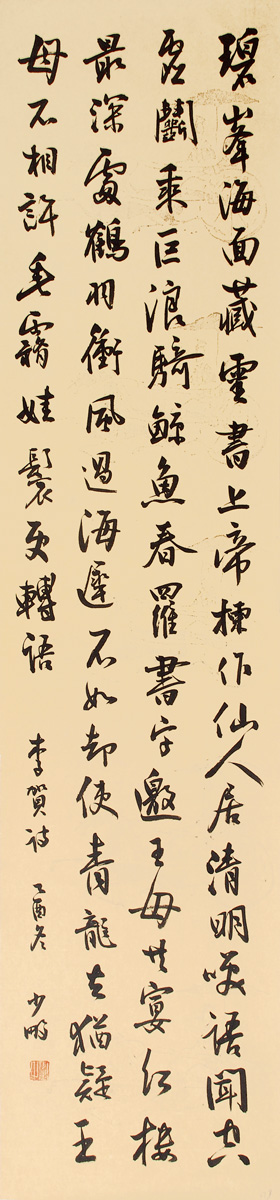 碧峯海面藏靈書上帝揀作仙人居清明笑語聞空
虛鬬乘巨浪騎鯨魚春羅書字邀王母共宴紅樓
最深處鶴羽衝風過海遲不如却使青龍去猶疑王
母不相許垂霧娃鬟更轉語 李賀詩 乙酉冬 少